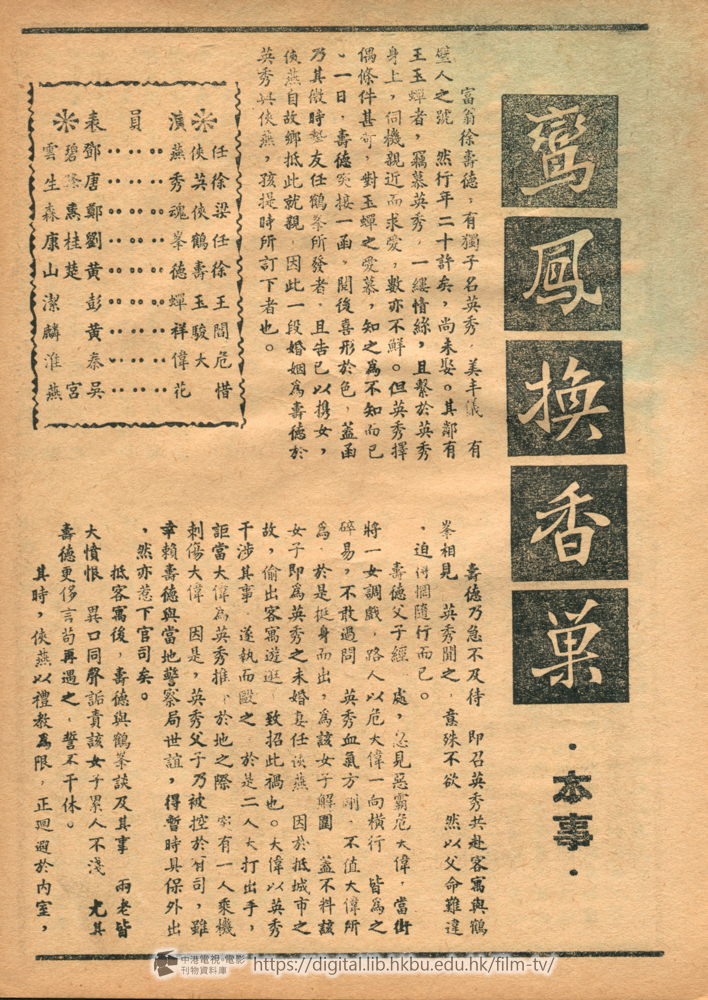 鸞鳳換香巢
·本事·
富翁徐壽德，有獨子名英秀，美丰儀　有
璧人之號　然行年二十許矣，尚未娶。其鄰有
王玉蟬者，竊慕英秀，一縷情絲，且繫於英秀
身上，伺機親近而求愛，數亦不鮮。但英秀擇
偶條件甚苛，對玉蟬之愛慕，知之為不知而已
。一日，壽德突接一函，閱後喜形於色，蓋函
乃其微時摯友任鶴峯所發者，且告已以携女，
俠燕自故鄉抵此就親，因此一段婚姻為壽德於
英秀與俠燕，孩提時所訂下者也。
※演員表※
任俠燕‥‥‥鄧碧雲
徐英秀‥‥‥唐　生
梁俠魂‥‥‥鄭惠森
任鶴峯‥‥‥劉桂康
徐壽德‥‥‥黃楚山
王玉蟬‥‥‥彭　潔
閻駿祥‥‥‥黃　麟
危大偉‥‥‥秦　淮
惜　花‥‥‥吳宮燕
壽德乃急不及待　即召英秀共赴客寓與鶴
峯相見　英秀聞之，意殊不欲　然以父命難違
，迫得　隨行而已。
壽德父子經　處，忽見惡霸危大偉，當街
將一女調戲，路人以危大偉一向橫行　皆為之
碎易，不敢過問　英秀血氣方剛，不值大偉所
為，於是挺身而出，為該女子解圍　蓋不料該
女子即為英秀之未婚妻任俠燕　因於抵城市之
故，偷出客寓遊逛　致招此禍也。大偉以英秀
干涉其事，遂執而毆之　於是二人大打出手，
詎當大偉為英秀推下於地之際　突有一人乘機
刺傷大偉　因是，英秀父子乃被控於有司，雖
幸賴壽德與當地警察局世誼，得暫時具保外出
，然亦惹下官司矣。
抵客寓後，壽德與鶴峯談及其事　兩老皆
大憤恨　異口同聲詬責該女子累人不淺　尤其
壽德更侈言苟再遇之，誓不干休。
其時，俠燕以禮教為限，正迴避於內室，
中港電視·電影
刊物資料庫
https://digital.lib.hkbu.edu.hk/film-tv/